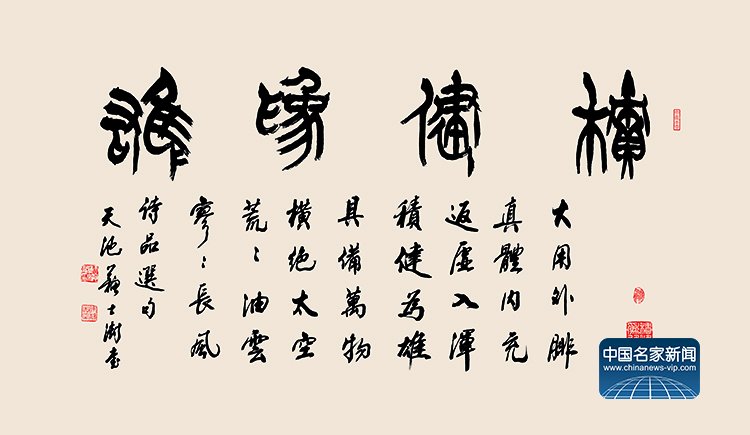 積健為雄
大用外腓
真體内充
返虛入渾
積健為雄
具備萬物
橫絕太空
荒〻油雲
寥〻長風
詩品選句
天池蘇士澍書
中国名家新闻
www.chinanews-vip.com